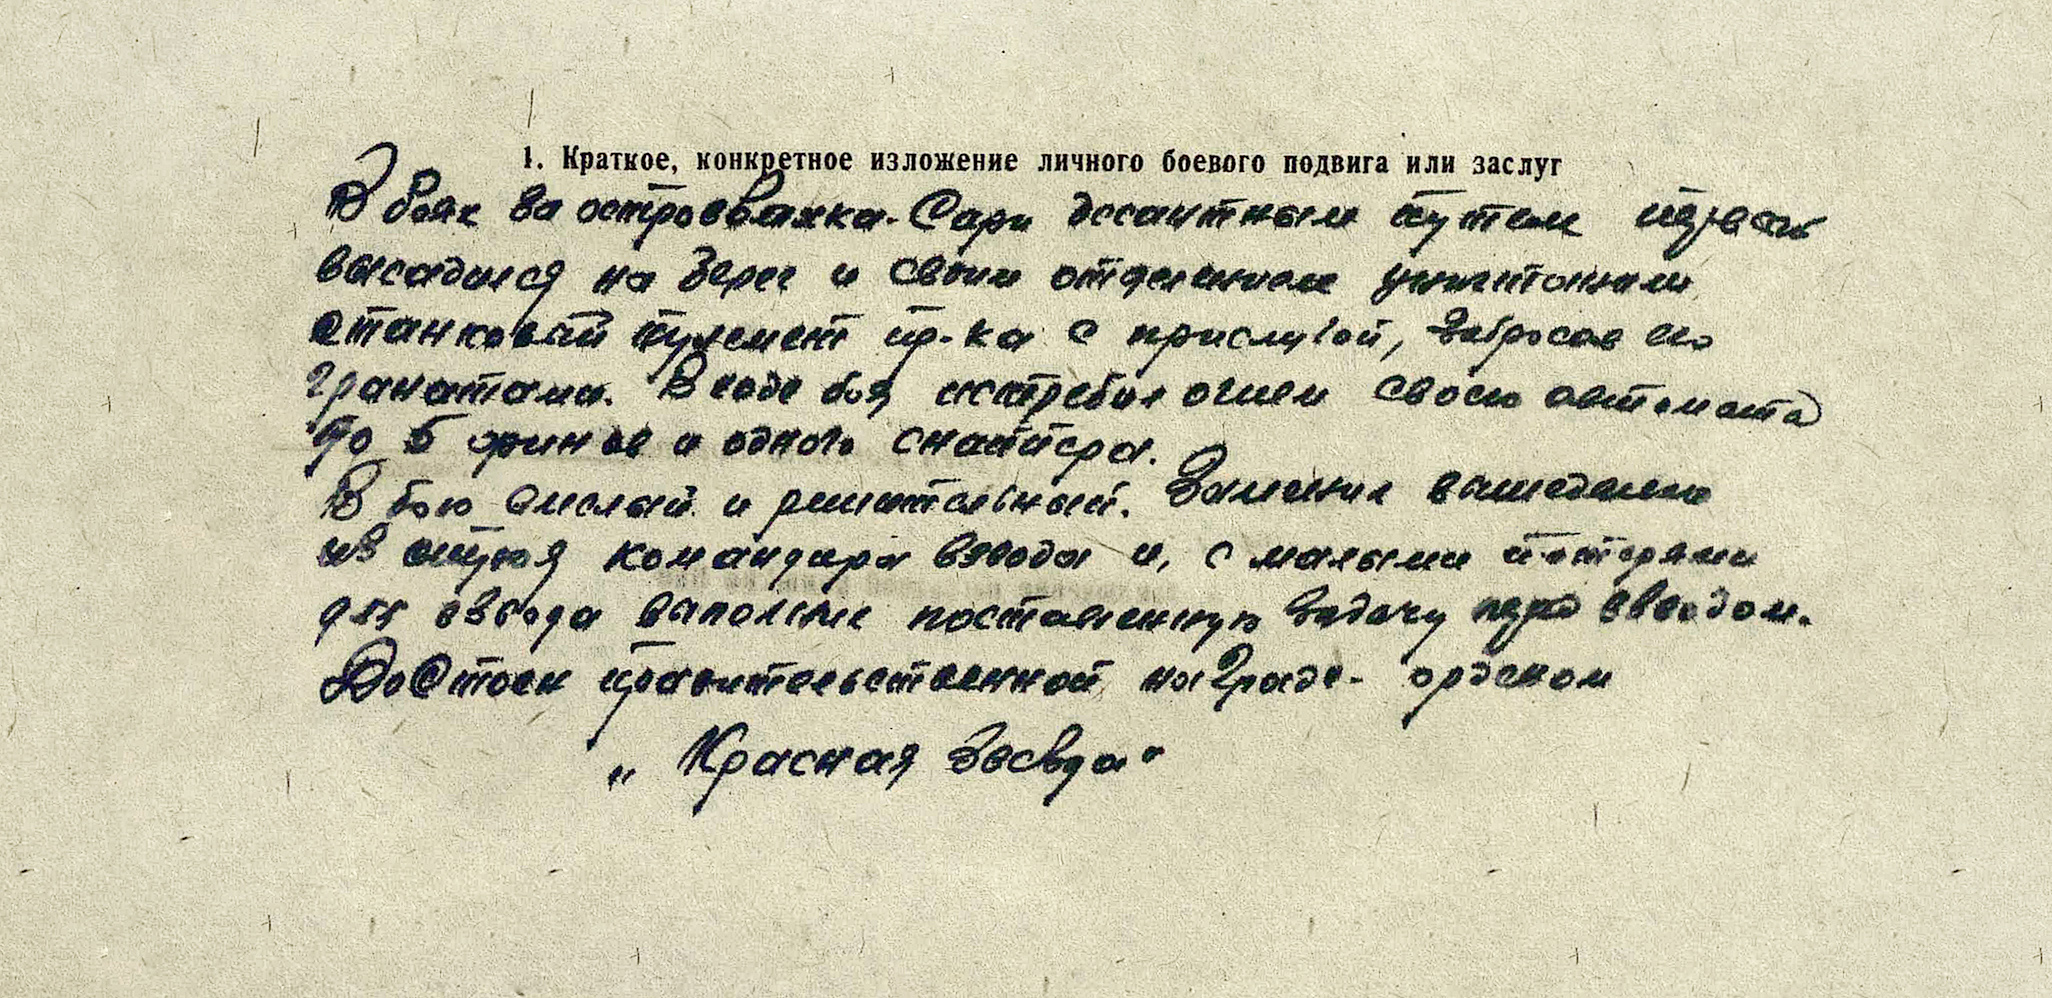 1. Краткое, конкретное изложение личного боевого подвига или заслуг
В боях за остров Ванха-Сари десантным путем первым
высадился на берег и своим отделением уничтожил
станковый пулемет пр-ка с прислугой, забросав его
гранатами. В ходе боя истребил огнем своего автомата
до 5 финнов и одного снайпера.
В бою смелый и решительный. Заменил вышедшего
из строя командира взвода и, с малыми потерями
для взвода выполнил поставленную задачу перед взводом.
Достоин правительственной награде - орденом
"Красная Звезда"